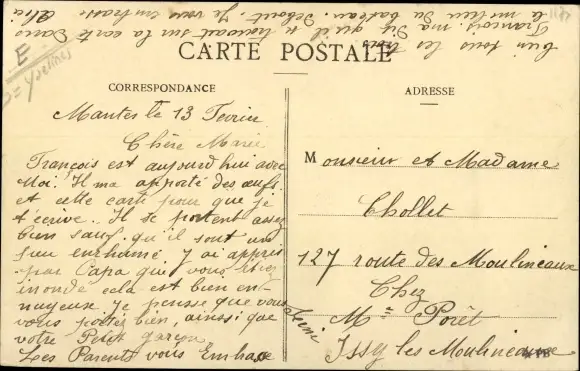 CARTE POSTALE
CORRESPONDANCE
ADRESSE
Mantes le 13 Fevrier
Chère Marie
François est aujourd'hui avec
Moi. Il ma apporté des œufs.
et cette carte pour que je
t'ecrive. Il se portent assez
bien sauf qu'il sont un
peu enrhumé. J'ai appris
par Papa que vous étiez
inondé cela est bien en-
nuyeux. Je pense que vous
vous portez bien, ainsi que
votre Petit garçon
Les Parents vous Embrasse
bien tous les trois
François. ma Dit qu'il se trouvait sur la carte Dans
le milieu du bateau. Debout. Je vous embrasse Alice
Monsieur et Madame
Chollet
127 route des Moulineaux
Chez
Mme Porêt
Issy les Moulineaux
Seine
E
Yvelines